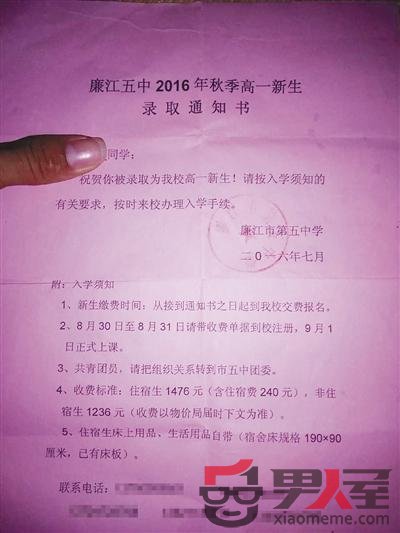 廉江五中 2016 年秋季高一新生
录 取 通 知 书
同学：
祝贺你被录取为我校高一新生！请按入学须知的
有关要求，按时来校办理入学手续。
廉江市第五中学
二0一六年七月
附：入学须知
1、新生缴费时间：从接到通知书之日起到我校交费报名。
2、8 月 30 日至 8 月 31 日请带收费单据到校注册，9 月 1
日正式上课。
3、共青团员，请把组织关系转到市五中团委。
4、收费标准：住宿生 1476 元（含住宿费 240 元），非住
宿生 1236 元（收费以物价局届时下文为准）。
5、住宿生床上用品、生活用品自带（宿舍床规格 190×90
厘米，已有床板）。
联系电话：
男人窝
xiaomeme.com